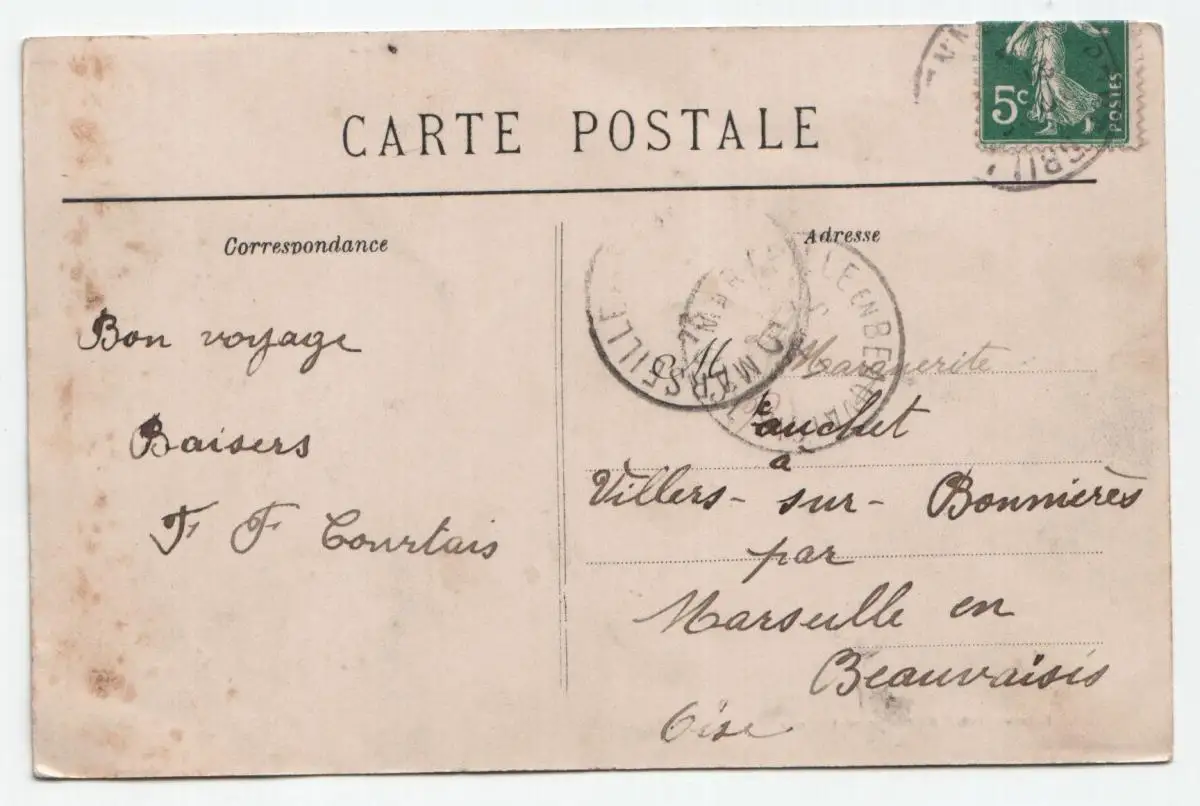 CARTE POSTALE
5c
POSTES
Correspondance
Adresse
Bon voyage
Baisers
F F Courtais
MARSEILLE EN BEAUVAISIS
Marguerite
à
Villers-sur-Bonnières
par
Marseille en
Beauvaisis
Oise